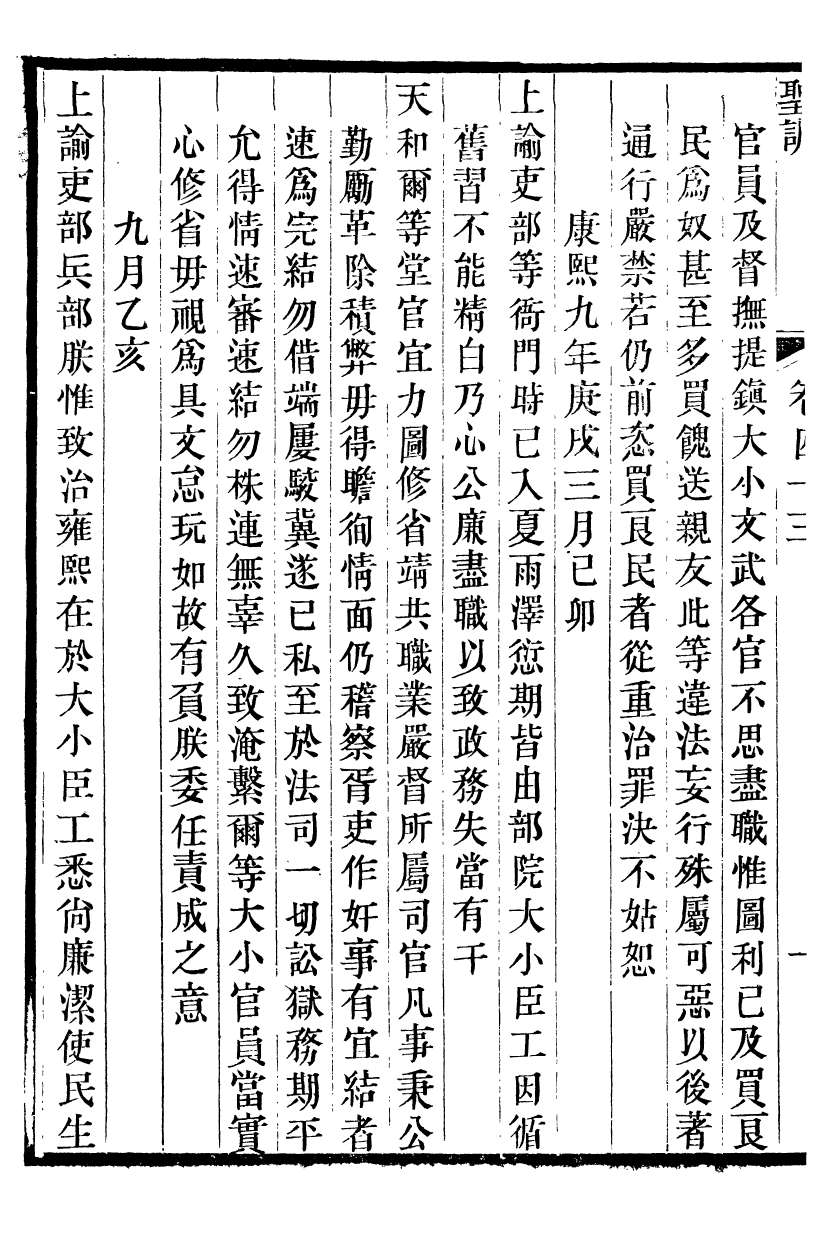 聖訓 卷四十三 一
官員及督撫提鎮大小文武各官不思盡職惟圖利已及買良
民爲奴甚至多買餽送親友此等違法妄行殊屬可惡以後著
通行嚴禁若仍前恣買良民者從重治罪決不姑恕
康熙九年庚戌三月己卯
上諭吏部等衙門時已入夏雨澤愆期皆由部院大小臣工因循
舊習不能精白乃心公廉盡職以致政務失當有干
天和爾等堂官宜力圖修省靖共職業嚴督所屬司官凡事秉公
勤勵革除積弊毋得瞻徇情面仍稽察胥吏作奸事有宜結者
速爲完結勿借端屢駁冀遂已私至於法司一切訟獄務期平
允得情速審速結勿株連無辜久致淹繫爾等大小官員當實
心修省毋視爲具文怠玩如故有負朕委任責成之意
九月乙亥
上諭吏部兵部朕惟致治雍熙在於大小臣工悉尚廉潔使民生